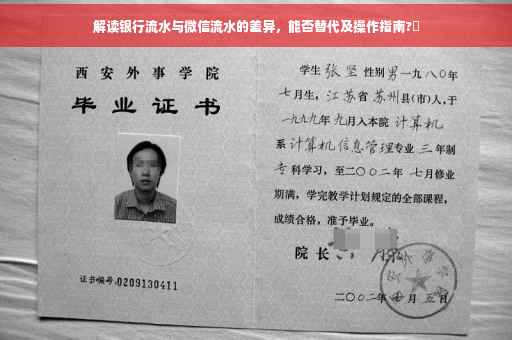 解读银行流水与微信流水的差异，能否替代及操作指南?
西安外事学院
毕业证书
证书编号:0209130411
学生 张坚 性别 男 一九八〇年
七月生，江苏省 苏州 县(市)人，于
一九九九年 九月入本院 计算机
系 计算机信息管理 专业 三 年制
专 科学习，至二〇〇二年 七月修业
期满，学完教学计划规定的全部课程，
成绩合格，准予毕业。
院长
二〇〇二年 月 五日